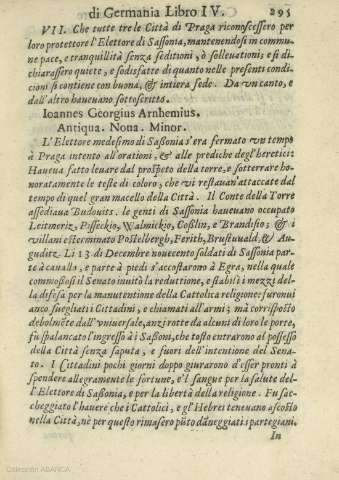 di Germania Libro IV. 295
VII. Che tutte tre le Città di Praga riconoscessero per
loro protettore l'Elettore di Sassonia, mantenendosi in commu-
ne pace, e tranquillità senza seditioni, ò solleuationi; e si di-
chiarassero quiete, e sodisfatte di quanto nelle presenti condi-
cioni si contiene con buona, & intiera fede. Da vn canto, e
dall'altro haueuano sottoscritto.
Ioannes Georgius Arnhemius.
Antiqua. Noua. Minor.
L'Elettore medesimo di Sassonia s'era fermato vn tempo
à Praga intento all'orationi, & alle prediche degl'heretici:
Haueua fatto leuare dal prospeto della torre, e sotterrare ho-
noratamente le teste di coloro, che vi restauan'attaccate dal
tempo di quel gran macello della Città. Il Conte della Torre
assediaua Budouits. le genti di Sassonia haueuano occupato
Leitmeriz, Pisseckio, Walmickio, Coslin, e Brandisio; & i
villani esterminato Postelbergh, Ferith, Brustuuald, & Au-
guditz. Li 13 di Decembre nouecento soldati di Sassonia par-
te à cauallo, e parte à piedi s'accostarono à Egra, nella quale
commossosi il Senato inuitò la reduttione, e stabilì i mezzi del-
la difesa per la manutentione della Cattolica religione: furonui
anco suegliati i Cittadini, e chiamati all'armi; mà corrisposto
debolmẽte dall'vniuersale, anzi rotte da alcuni di loro le porte,
fù spalancato l'ingresso à i Sassoni, che tosto entrarono al possesso
della Città senza saputa, e fuori dell'intentione del Sena-
to. I Cittadini pochi giorni doppo giurarono d'esser pronti à
spendere allegramente le fortune, e'l sangue per la salute del-
l'Elettore di Sassonia, e per la libertà della religione. Fu sac-
cheggiato l'hauere che i Cattolici, e gl'Hebrei teneuano ascosto
nella Città, nè per questo rimasero pũto dãneggiati i partegiani.
In
Colección ABANCA